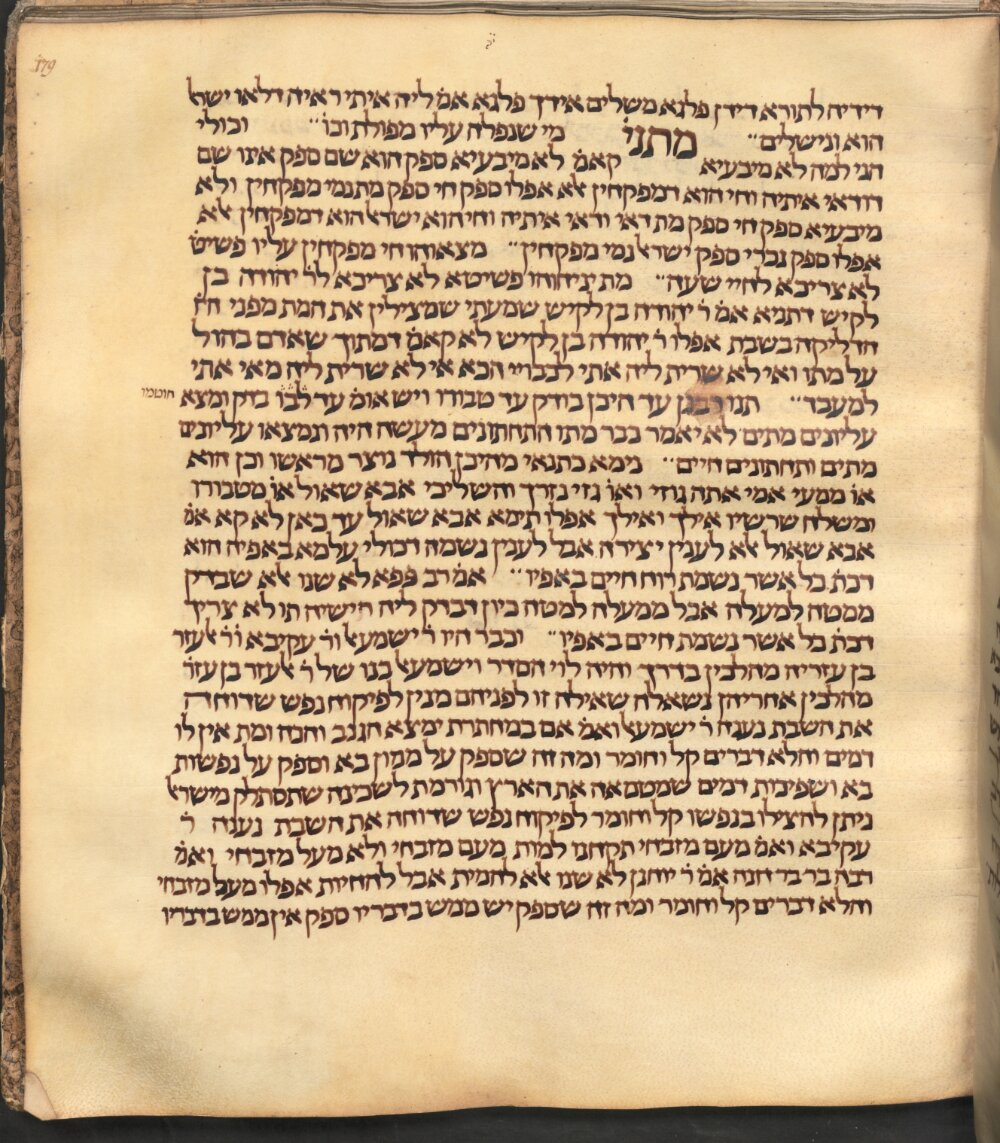 179
דידיה לתורא דידן פלגא משלים אידך פלגא אמ' ליה איתי ראיה דלאו ישר'
הוא ונישלים מתני' מי שנפלה עליו מפולת וכו' וכולי
הני למה לא מיבעיא קאמ' לא מיבעיא ספק הוא שם ספק אינו שם
דודאי איתיה וחי הוא דמפקחין אלא אפלו ספק חי ספק מת נמי מפקחין ולא
מיבעיא ספק חי ספק מת דאי ודאי איתיה וחי הוא ישראל הוא דמפקחין אלא
אפלו ספק גברי ספק ישראל נמי מפקחין מצאוהו חי מפקחין עליו פשיט'
לא צריכא לחיי שעה מת יניחוהו פשיטא לא צריכא לר' יהודה בן
לקיש דתניא אמ' ר' יהודה בן לקיש שמעתי שמצילין את המת מפני
הדליקה בשבת אפלו ר' יהודה בן לקיש לא קאמ' דמתוך שאדם בהול
על מתו ואי לא שרית ליה אתי לכבויי הכא אי לא שרית ליה מאי אתי
למעבד תנו רבנן עד היכן בודק עד טבורו ויש אומ' עד לבו בדק ומצא
חוטמו
עליונים מתים לא יאמר כבר מתו התחתונים מעשה היה ונמצאו עליונים
מתים ותחתונים חיים נימא כתנאי מהיכן הולד נוצר מראשו וכן הוא
או' ממעי אמי אתה גוזי ואו' גזי נזרך והשליכי אבא שאול או' מטבורו
ומשלח שרשיו אילך ואילך אפלו תימא אבא שאול עד כאן לא קא אמ'
אבא שאול אלא לענין יצירה אבל לענין נשמה דכולי עלמא באפיה הוא
דכת' כל אשר נשמת רוח חיים באפיו אמ' רב פפא לא שנו אלא שבדק
ממטה למעלה אבל ממעלה למטה כיון דבדק ליה חישיה תו לא צריך
דכת' כל אשר נשמת חיים באפיו וכבר היו ר' ישמעאל ור' עקיבא ור' אלעזר
בן עזריה מהלכין בדרך והיה לוי הסדר וישמעאל בנו של ר' אלעזר בן עזר'
מהלכין אחריהן נשאלה שאילה זו לפניהם מנין לפיקוח נפש שדוחה
את השבת נענה ר' ישמעאל ואמ' אם במחתרת ימצא הגנב והכה ומת אין לו
דמים והלא דברים קל וחומר ומה זה שספק על ממון בא וספק על נפשות
בא ושפיכות דמים שמטמאה את הארץ וגורמת לשכינה שתסתלק מישראל
ניתן להצילו בנפשו קל וחומר לפיקוח נפש שדוחה את השבת נענה ר'
עקיבא ואמ' מעם מזבחי תקחנו למות מעם מזבחי ולא מעל מזבחי ואמ'
רבה בר בר חנה אמ' ר' יוחנן לא שנו אלא להמית אבל להחיות אפלו מעל מזבחי
והלא דברים קל וחומר ומה זה שספק יש ממש בדבריו ספק אין ממש בדבריו